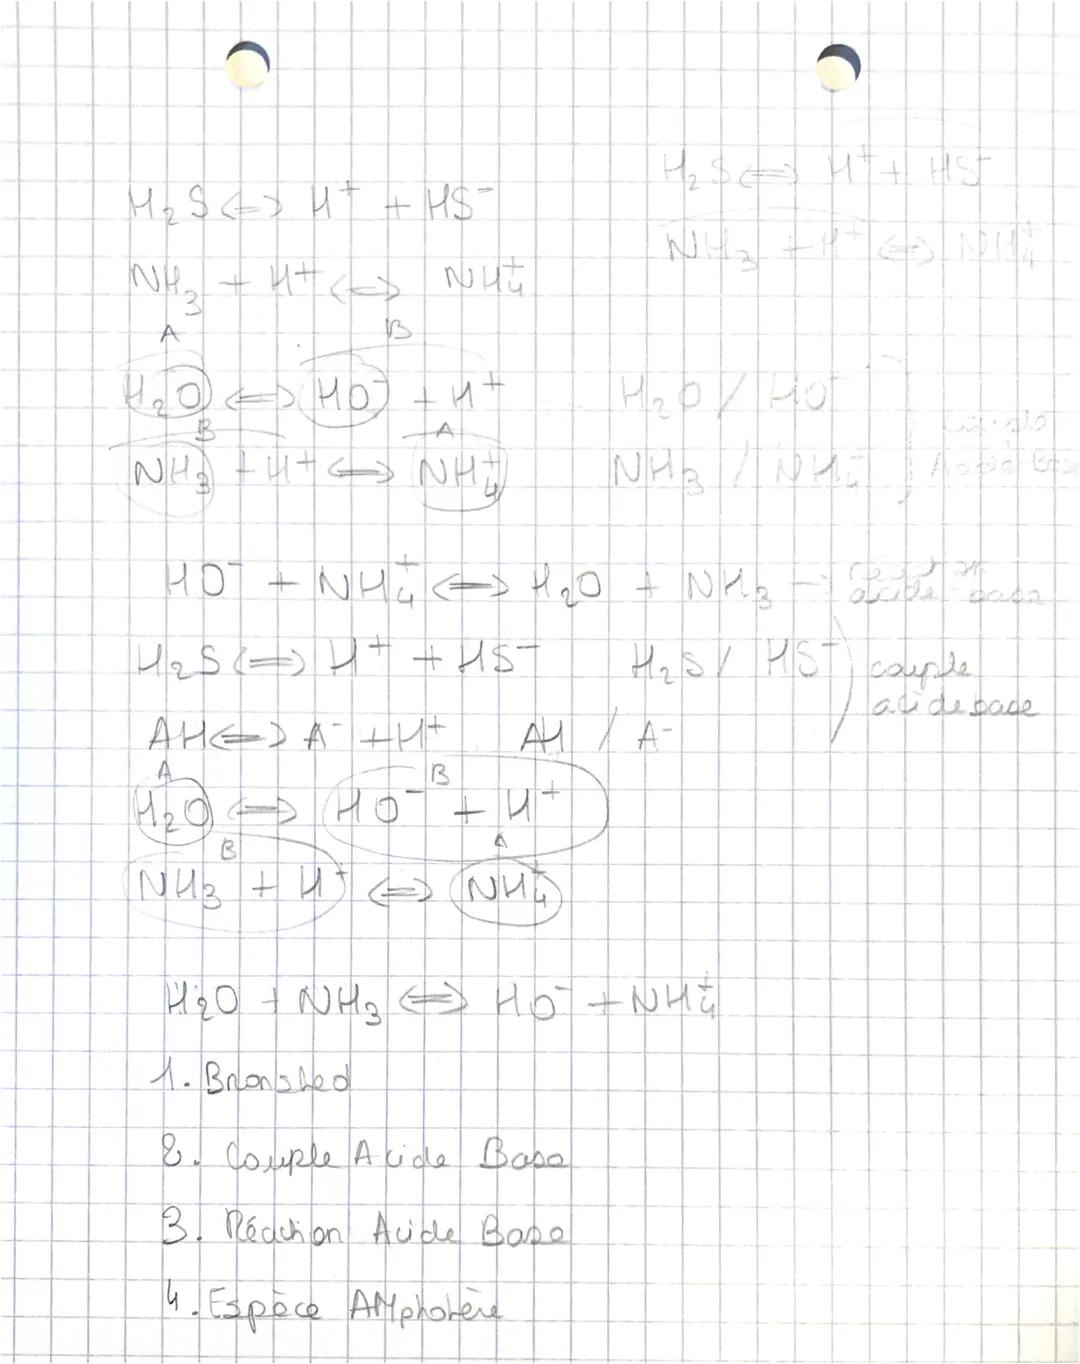 H₂S ⇔ H⁺ + HS⁻
H₂S ⇔ H⁺ + HS⁻
NH₃ + H⁺ ⇔ NH₄⁺
NH₃ + H⁺ ⇔ NH₄⁺
A B
H₂O ⇔ HO⁻ + H⁺ H₂O / HO⁻
B A
NH₃ + H⁺ ⇔ NH₄⁺ NH₃ / NH₄⁺
couple
Acide Base
HO⁻ + NH₄⁺ ⇔ H₂O + NH₃ → réaction
acide-base
H₂S ⇔ H⁺ + HS⁻ H₂S / HS⁻
couple
acide base
AH ⇔ A⁻ + H⁺ AH / A⁻
A B
H₂O ⇔ HO⁻ + H⁺
B A
NH₃ + H⁺ ⇔ NH₄⁺
H₂O + NH₃ ⇔ HO⁻ + NH₄⁺
1. Bronsted
2. Couple Acide Base
3. Réaction Acide Base
4. Espèce AMphotère